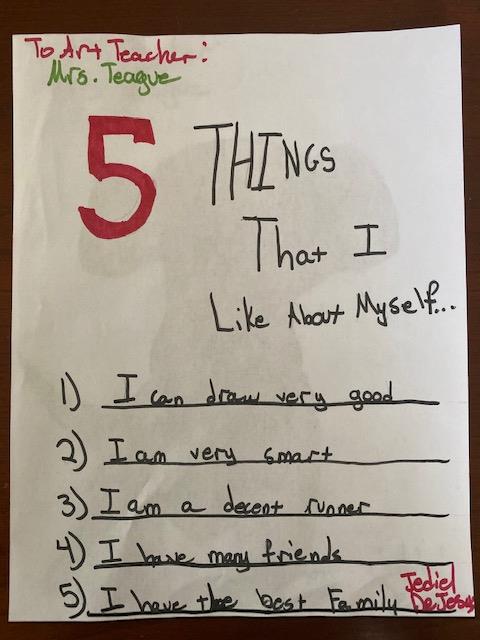 To Art Teacher:
Mrs. Teague
5 THINGS
That I
Like About Myself...
1) I can draw very good
2) I am very smart
3) I am a decent runner
4) I have many friends
5) I have the best Family
Jediel
DeJesus